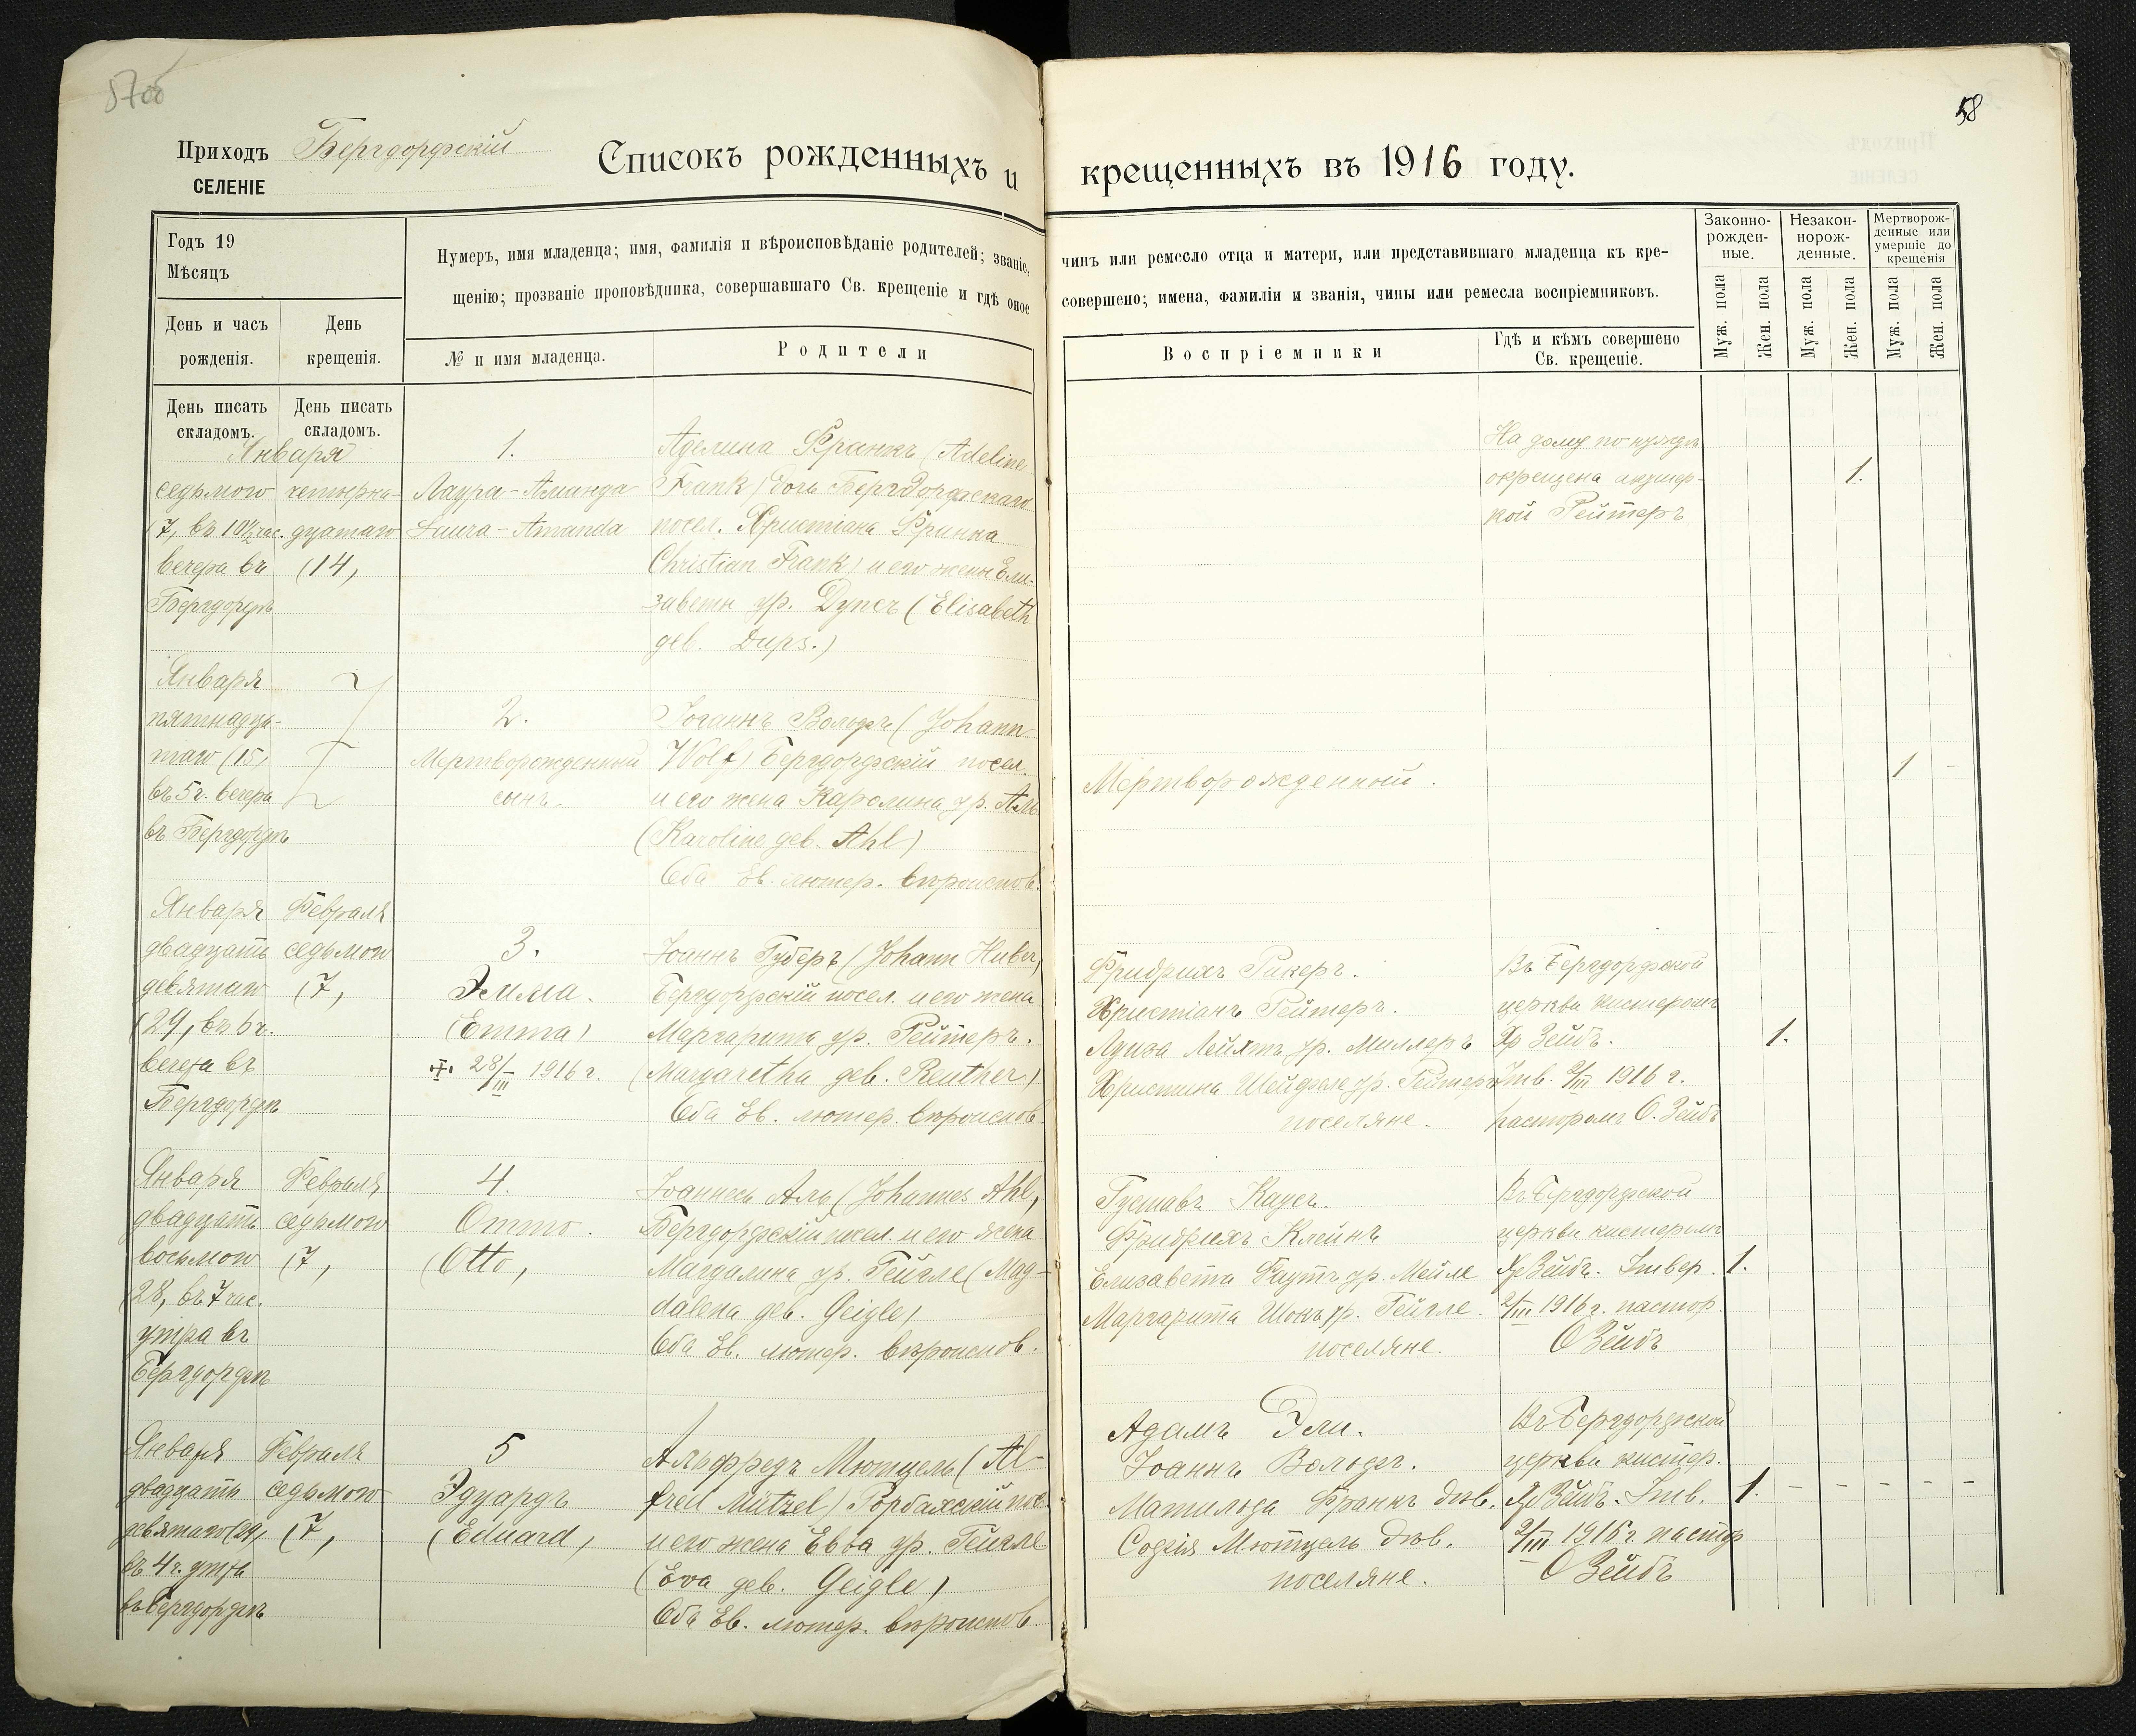 57об
58
Приходъ Бергдорфскій
СЕЛЕНІЕ
Списокъ рожденныхъ и крещенныхъ въ 1916 году.
Годъ 19
Мѣсяцъ
День и часъ рожденія.
День крещенія.
Нумеръ, имя младенца; имя, фамилія и вѣроисповѣданіе родителей; званіе, чинъ или ремесло отца и матери, или представившаго младенца къ кре-
щенію; прозваніе проповѣдника, совершавшаго Св. крещеніе и гдѣ оное совершено; имена, фамиліи и званія, чины или ремесла воспріемниковъ.
№ и имя младенца.
Родители
Воспріемники
Гдѣ и кѣмъ совершено
Св. крещеніе.
Законно-
рожден-
ные.
Незакон-
норож-
денные.
Мертворож-
денные или
умершіе до
крещенія
Муж. пола
Жен. пола
Муж. пола
Жен. пола
Муж. пола
Жен. пола
День писать
складомъ.
День писать
складомъ.
Января
седьмого
(7, въ 10½ час.
вечера въ
Бергдорфѣ
четырна-
дцатаго
(14,
1.
Лаура-Аманда
Laura-Amanda
Аделина Франкъ (Adeline
Frank) дочь Бергдорфскаго
посел. Христіана Франка
Christian Frank) и его жены Ели-
заветы ур. Дупсъ (Elisabeth
geb. Dups.)
На дому по нуждѣ
окрещена акушер-
кой Рейтеръ
1.
Января
пятнадца-
таго (15,
въ 5 ч. вечера
въ Бергдорфѣ
2.
Мертворожденный
сынъ.
Іоаннъ Вольфъ (Johann
Wolf) Бергдорфскій посел.
и его жена Каролина ур. Аль
(Karoline geb. Ahl)
Оба Ев. лютер. вѣроиспов.
Мертворожденный.
1 -
Января
двадцать
девятаго
(29, въ 6 ч.
вечера въ
Бергдорфѣ
Февраля
седьмого
(7,
3.
Эмма.
(Emma)
28/III 1916 г.
Іоаннъ Губеръ (Johann Huber,
Бергдорфскій посел. и его жена
Маргарита ур. Рейтеръ.
(Margaretha geb. Reuther)
Оба Ев. лютер. вѣроиспов.
Фридрихъ Рикеръ.
Христіанъ Рейтеръ.
Луиза Лейхтъ ур. Миллеръ
Христина ур. Рейтеръ
поселяне.
Въ Бергдорфской
церкви кистеромъ
Хр Зейбъ.
Утв. 2/III 1916 г.
пасторомъ О. Зейбъ
1.
Января
двадцать
восьмого
28, въ 7 час.
утра въ
Бергдорфѣ
Февраля
седьмого
(7,
4.
Отто.
(Otto,
Іоаннесъ Аль (Johannes Ahl,
Бергдорфскій посел. и его жена
Магдалина ур. Гейгле (Mag-
dalena geb. Geigle)
Оба Ев. лютер. вѣроиспов.
Густавъ Каусъ.
Фридрихъ Клейнъ
Елизавета Фаутъ ур. Мейле
Маргарита Шокъ ур. Гейгле.
поселяне.
Въ Бергдорфской
церкви кистеромъ
Хр Зейбъ. Утвер.
2/III 1916 г. пастор.
О Зейбъ
1.
Января
двадцать
девятаго (29,
въ 4 ч. утра
въ Бергдорфѣ
Февраля
седьмого
(7,
5
Эдуардъ
(Eduard,
Альфредъ Мютцель (Al-
fred Mützel) пос.
и его жена Евва ур. Гейгле
(Eva geb. Geigle)
Оба Ев. лютер. вѣроиспов.
Адамъ Эли.
Іоаннъ Вольфъ.
Матильда Франкъ дѣв.
Софія Мютцель дѣв.
поселяне.
Въ Бергдорфской
церкви кистер.
Хр Зейбъ. Утв.
2/III 1916 г. пастор
О Зейбъ
1. - - - - -